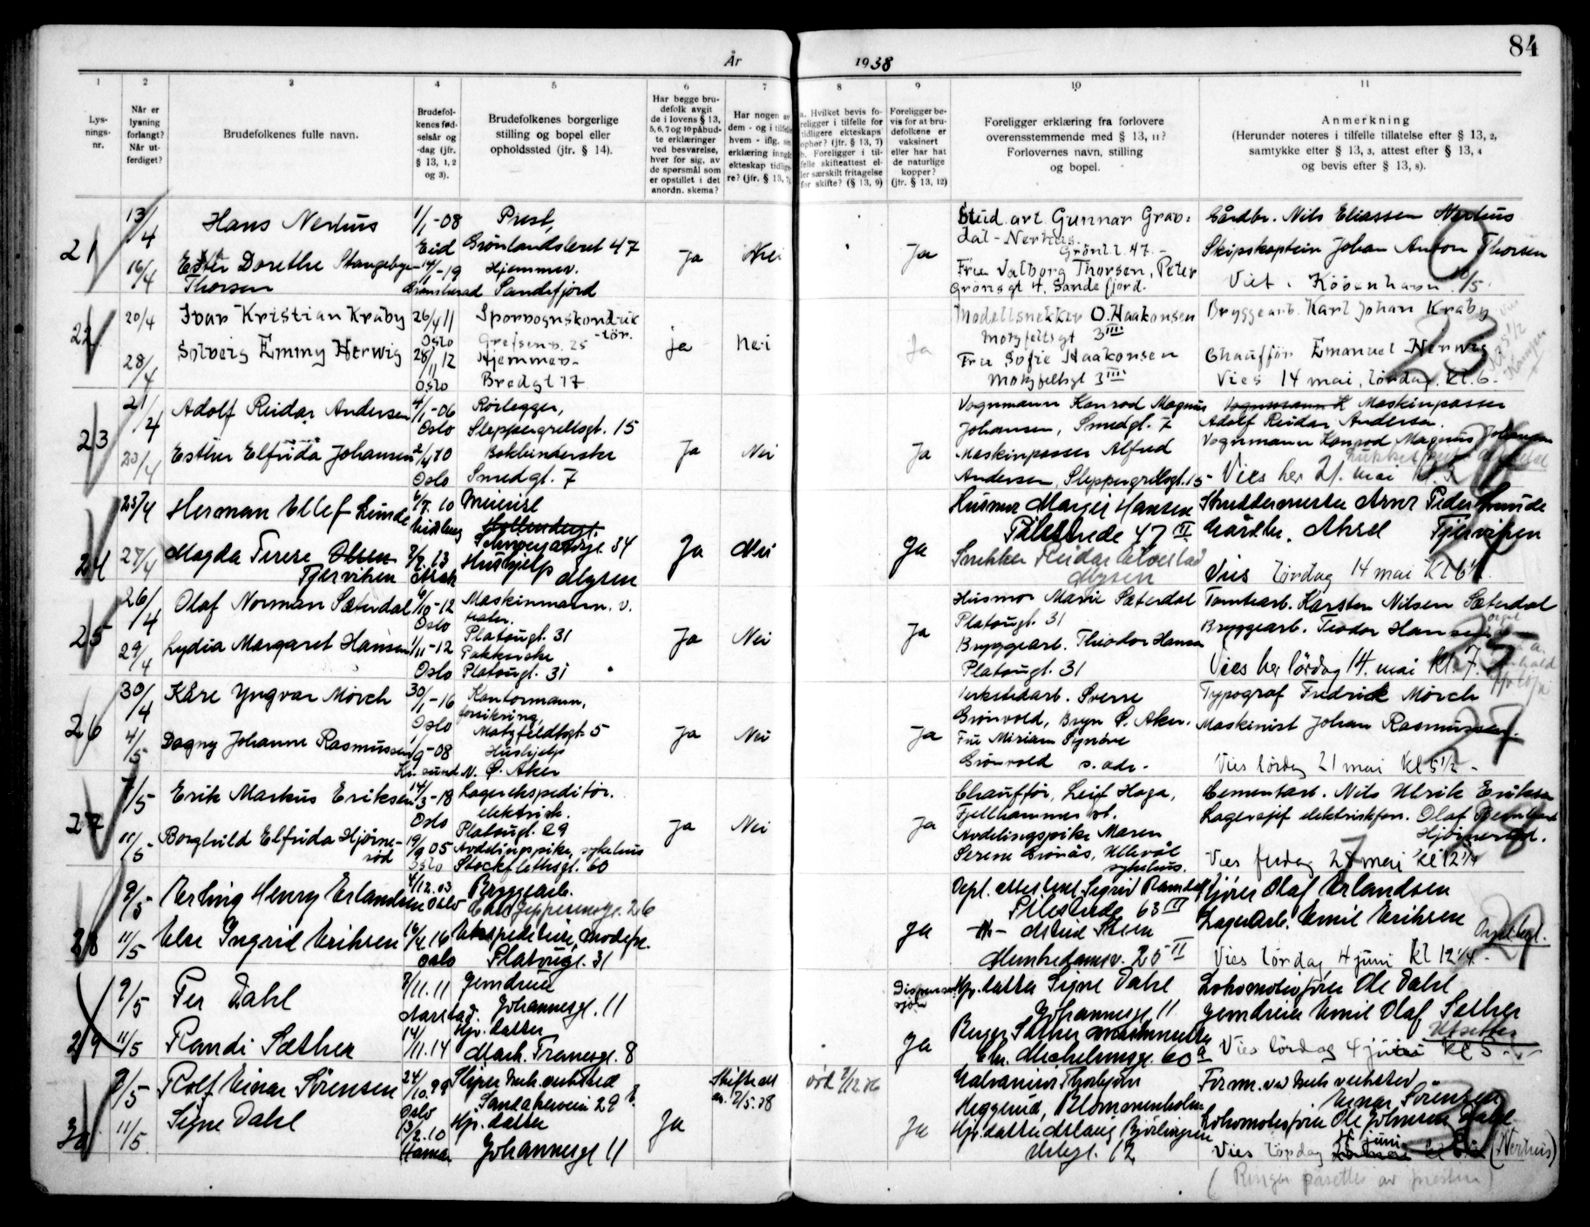 84
År 1938
1 2 3 4 5 6 7 8 9 10 11
Lys-
nings-
nr.
Når er
lysning
forlangt?
Når ut-
ferdiget?
Brudefolkenes fulle navn.
Brudefol-
kenes fød-
selsår og
-dag (jfr.
§ 13, 1, 2
og 3).
Brudefolkenes borgerlige
stilling og bopel eller
opholdssted (jfr. § 14).
Har begge bru-
defolk avgitt
de i lovens § 13,
5, 6, 7 og 10 påbud-
te erklæringer
ved besvarelse,
hver for sig, av
de spørsmål som
er opstillet i det
anordn. skema?
Har nogen av
dem - og i tilfelle
hvem - iflg.
erklæring inngått
ekteskap tidlige-
re? (jfr. § 13, 7)
a. Hvilket bevis fo-
religger i tilfelle for
tidligere ekteskaps
ophør? (jfr. § 13, 7)
b. Foreligger i til-
felle skifteattest el-
ler særskilt fritagelse
for skifte? (§ 13, 9)
Foreligger be-
vis for at bru-
defolkene er
vaksinert
eller har hat
de naturlige
kopper?
(jfr. § 13, 12)
Foreligger erklæring fra forlovere
overensstemmende med § 13, 11?
Forlovernes navn, stilling
og bopel.
Anmerkning
(Herunder noteres i tilfelle tillatelse efter § 13, 2,
samtykke efter § 13, 3, attest efter § 13, 4
og bevis efter § 13, 8).
21
13/4
16/4
Hans Nerhus
Ester Dorethe Stangebye
Thorsen
1/1-08
Eid
14/1-19
Prest,
Grønlandsleret 47
Hjemmev.
Sandefjord
Ja
Nei
Ja
Stud. art Gunnar Grav-
dal-Nerhus
Grønl. 47.-
Fru Valborg Thorsen, Peter
Grønsgt 4. Sandefjord.
Gårdbr. Nils Eliassen Nerhus
Skipskaptein Johan Anton Thorsen
Viet i København 10/5.
22
20/4
28/4
Ivar Kristian Kråby
Solveig Emmy Herwig
26/4 11
Oslo
28/11 12
Oslo
Sporvognskonduk
-tør.
Grefsenv. 25
Hjemmev.
Bredgt 17
ja
nei
Ja
Modellsnekker O. Haakonsen
Motzfeltsgt 3 III
Fru Sofie Haakonsen
Motzfeltsgt 3 III
Bryggearb. Karl Johan Kråby
Chauffør Emanuel Herwig
Vies 14 mai, lørdag. Kl. 6.
23
23
21/4
23/4
Adolf Reidar Andersen
Esther Elfrida Johansen
4/1-06
Oslo
Oslo
Rørlegger,
Sleppegrellsgt. 15
Bokbinderske
Smedgt. 7
Ja
Nei
Ja
Vognmann Konrod Magnus
Johansen, Smedgt. 7
Maskinpasser Alfred
Andersen, Sleppegrellsgt. 15
Vognmann K Maskinpasser
Adolf Reidar Andersen.
Vognmann Konrod Magnus Johansen
Vies her 21. mai kl. 5
24
25/4
27/4
Herman Ellef Lunde
Magda Terese Olsen
Tjervihen
Hushjelp
Mysen
Ja
Nei
Ja
Husmor Margit Hansen
Pilestrede 47 II
Snekker Reidar
Mysen
Skreddermester Arnt Peder Lunde
Gårdbr. Aksel Tjervihen
Vies lørdag 14 mai kl 6½.
25
26/4
29/4
Olaf Norman Sæterdal
Lydia Margaret Hansen
6/10-12
Oslo
1/11-12
Oslo
Maskinmann. v.
Platougt. 31
Pakkerske
Platougt. 31
Ja
Nei
Ja
Husmor Marie Sæterdal
Platougt. 31
Bryggearb. Theodor Hansen
Platougt. 31
Tomtearb. Karsten Nilsen Sæterdal
Bryggearb. Teodor Hansen
Vies her lørdag 14. mai kl. 7.
25
26
30/4
4/5
Kåre Yngvar Mörch
Dagny Johanne Rasmussen
30/1-16
Oslo
1/9-08
Kr. sund N.
Kontormann,
forsikring,
Motzfeldtsgt. 5
Hushjelp
Ø. Aker
Ja
Nei
Ja
Verkstedarb. Sverre
Grønvold, Bryn Ø. Aker.
Fru Miriam Synøve
Grønvold s. adr.
Typograf Fredrick Mörch
Maskinist Johan Rasmussen.
Vies lørdag 21 mai Kl 5½ -
27
27
7/5
11/5
Erik Markus Eriksen
Borghild Elfrida Hjörne-
röd
14/3-18
Oslo
19/9 05
Oslo
Lagerekspeditør.
elektrisk.
Platougt. 29
Avdelingspike, sykehus
Stockflethsgt. 60
Ja
Nei
Ja
Chauffør, Leif Haga,
Fjellhammer st.
Avdelingspike Maren
Serene Grönås, Ullevål
sykehus.
Cementarb. Nils Ulrik Eriksen
Lagersjef elektriskfor. Olaf Bernhard
Hjörneröd.
Vies fredag 27 mai kl 12¼
28
28
9/5
11/5
Erling Henry Erlandsen
Else Ingrid Eriksen
4/12.03
Oslo
16/4.16
Oslo
Bryggearb.
Chr. Jeppesensgt. 26
Ekspeditrise,
Platougt. 31
Ja
Sigrid
Pilestrede 63 III
Astrid
Munkedamsv. 25 II
Kjører Olaf Erlandsen
Lagerarb. Emil Eriksen
Vies lørdag 4 juni Kl 12¼ -
29
29
9/5
11/5
Per Dahl
Randi Sæther
8/11.11
Harstad.
14/11.14
Gendreur
Johannesgt. 11
Hjv. datter
Mark. Tranesgt. 8
Ja
Hjv. datter Signe Dahl
Johannesgt 11
Chr. Michelsensgt. 60 a
Lokomotivfører Ole Dahl
Gendreur Emil Olaf Sæther
Utsettes
Vies lørdag 4 juni Kl 5
30
9/5
11/5
Rolf Einar Sörensen
Signe Dahl
24/10.99
Oslo
13/2.10
Hamar
Sliper Mek. verksted
Sandakerveien 29 B.
Hjv. datter
Johannesgt 11
Ja
Skifteatt
av. 2/5.38
död 7/12.36
Ja
Galvanisør Thorbjörn
Heggerud, Blommenholm
Hjv. datter Aslaug
12
Form. ved Mek verksted
Einar Sörensen
Lokomotivfører Ole Johansen Dahl
Vies lørdag juni (Nerhus)
(Ringer påsettes av presten)